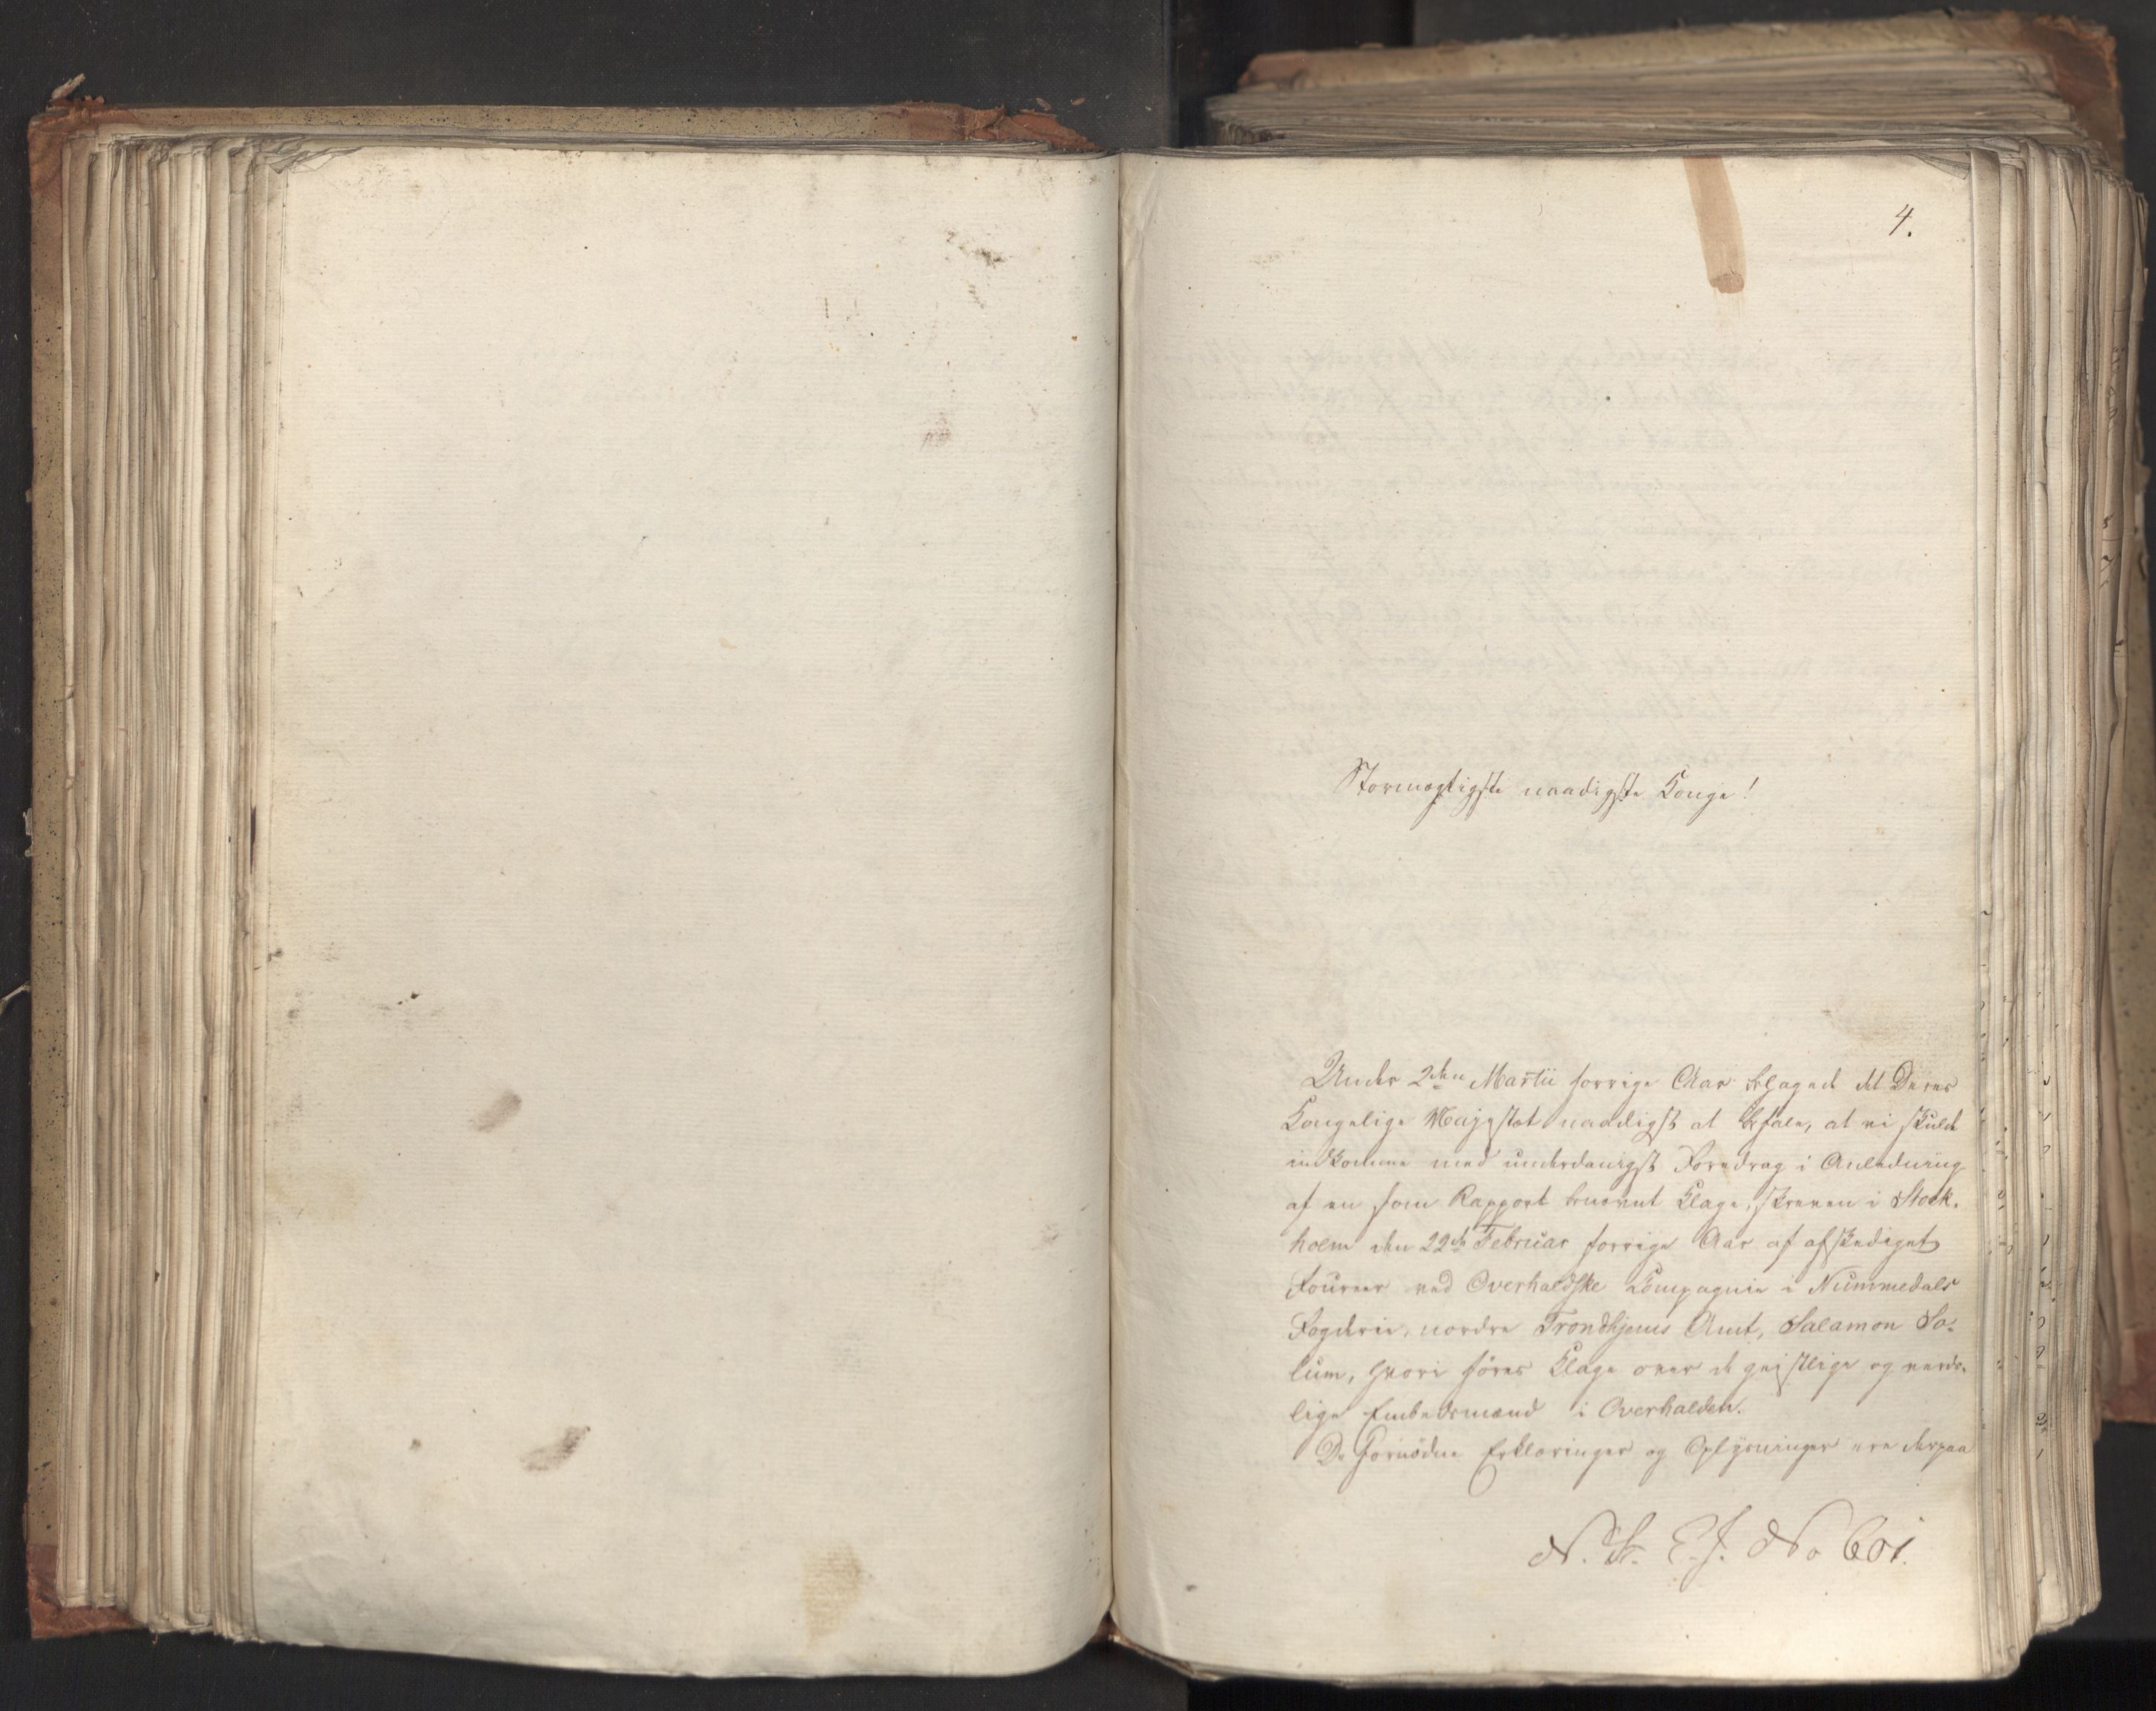 4.
Stormægtigste naadigste Konge!
Under 2den Martii forrige Aar behagede det Deres
Kongelige Majestæt naadigst at befale, at vi skulde
indkomme med underdanigst Foredrag i Anledning
af en som Rapport benævnt Klage, skreven i Stock-
holm den 22de Februar forrige Aar af afskediget
Foureer ved Overhaldske Kompagnie i Nummedals
Fogderie, nordre Trondhjems Amt, Salamon So-
lum, hvori føres Klage over de geistlige og verds-
lige Embedsmænd i Overhalden.
De fornødne Erklæringer og Oplysninger ere derpaa
N. St. E. J. No 601.